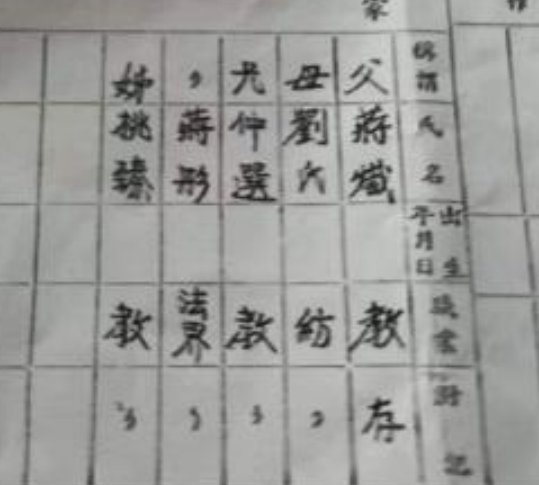 家
稱謂 氏名 出生年月日 職業 附記
父 蔣熾 教 存
母 劉氏 紡 〃
兄 仲選 教 〃
〃 蔣彤 法界 〃
姊 桃臻 教 〃